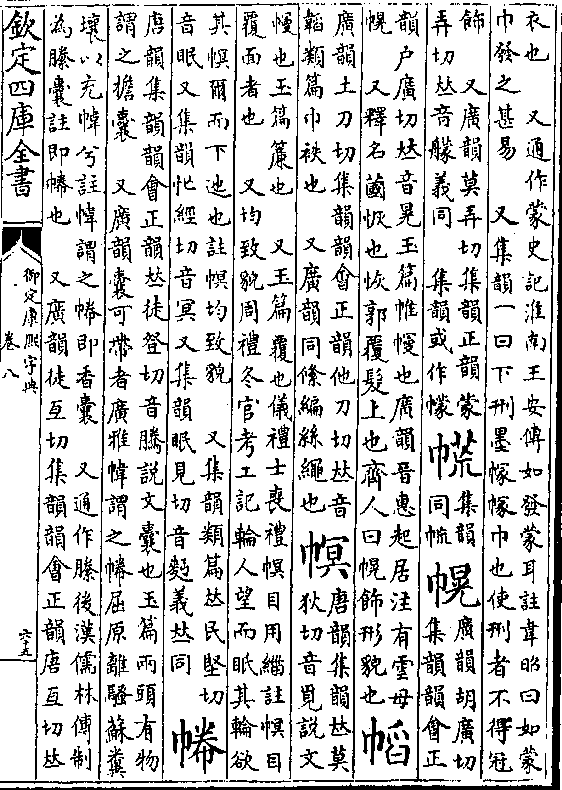 衣也　又通作蒙史記淮南王安傳如發蒙耳註韋昭曰如蒙
巾發之甚易　又集韻一曰下刑墨幏幏巾也使刑者不得冠
飾　又廣韻莫弄切集韻正韻蒙
弄切𠀤音艨義同　集韻或作幪
㡛
集韻
同㡆
幌
廣韻胡廣切
集韻韻會正
韻户廣切𠀤音晃玉篇帷幔也廣韻晉惠起居注有雲母
幌　又釋名簂恢也恢郭覆髮上也齊人曰幌飾形貌也
幍
廣韻土刀切集韻韻會正韻他刀切𠀤音
韜類篇巾袟也　又廣韻同絛編絲繩也
幎
唐韻集韻𠀤莫
狄切音覓説文
幔也玉篇簾也　又玉篇覆也儀禮士喪禮幎目用緇註幎目
覆面者也　又均致貌周禮冬官考工記輪人望而眡其輪欲
其幎爾而下迆也註幎均致貌　又集韻類篇𠀤民堅切
音眠又集韻忙經切音冥又集韻眠見切音麪義𠀤同
幐
唐韻集韻韻會正韻𠀤徒登切音騰説文囊也玉篇兩頭有物
謂之擔囊　又廣韻囊可帶者廣雅幃謂之幐屈原離騷蘇糞
壤以充幃兮註幃謂之幐即香囊　又通作縢後漢儒林傳制
為縢囊註即幐也　又廣韻徒亙切集韻韻會正韻唐亙切𠀤
欽定四庫全書
御定康熙字典
卷八
六十五